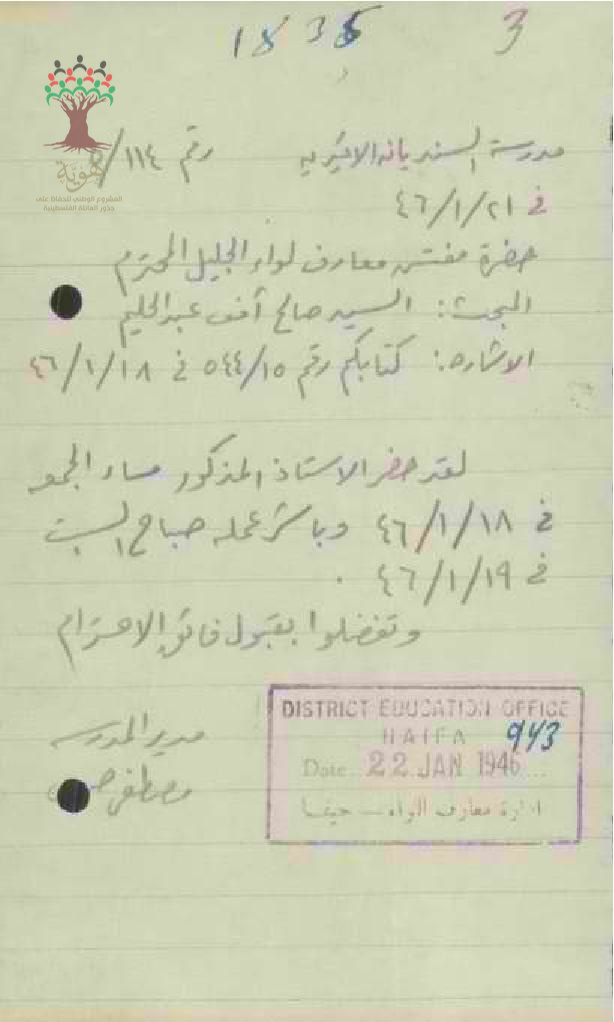 1835
3
هوية
المشروع الوطني للحفاظ على
جذور العائلة الفلسطينية
مدرسة السنديانة الاميرية رقم ١١٤/
في ٤٦/١/٢١
حضرة مفتش معارف لواء الجليل المحترم
البحث: السيد صالح أفندي عبدالحليم
الاشارة: كتابكم رقم ٥٤٤/١٥ في ٤٦/١/١٨
لقد حضر الاستاذ المذكور مساء الجمعه
في ٤٦/١/١٨ وباشر عمله صباح السبت
في ٤٦/١/١٩ .
وتفضلوا بقبول فائق الاحترام
مدير المدرسه
مصطفى
DISTRICT EDUCATION OFFICE
HAIFA 943
Date 22 JAN 1946
ادارة معارف اللواء — حيفا